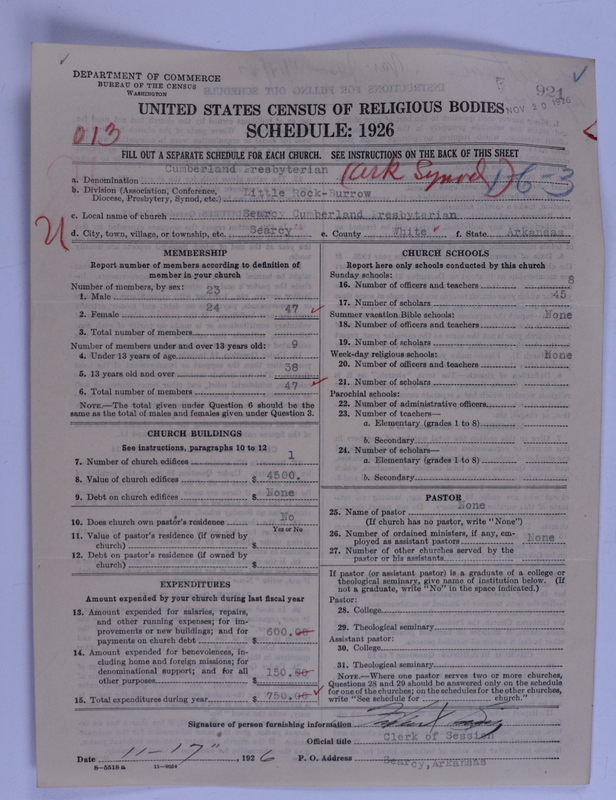 DEPARTMENT OF COMMERCE
BUREAU OF THE CENSUS
WASHINGTON
921
NOV 20 1926
UNITED STATES CENSUS OF RELIGIOUS BODIES
SCHEDULE: 1926
013
FILL OUT A SEPARATE SCHEDULE FOR EACH CHURCH. SEE INSTRUCTIONS ON THE BACK OF THIS SHEET
a. Denomination Cumberland Presbyterian (Ark Synod) 16-3
b. Division (Association, Conference, Diocese, Presbytery, Synod, etc.) Little Rock-Burrow
c. Local name of church Searcy Cumberland Presbyterian
d. City, town, village, or township, etc. Searcy e. County White f. State Arkansas
MEMBERSHIP
Report number of members according to definition of
member in your church
Number of members, by sex:
1. Male 23
2. Female 24 47
3. Total number of members
Number of members under and over 13 years old:
4. Under 13 years of age 9
5. 13 years old and over 38
6. Total number of members 47
NOTE.—The total given under Question 6 should be the
same as the total of males and females given under Question 3.
CHURCH BUILDINGS
See instructions, paragraphs 10 to 12
7. Number of church edifices 1
8. Value of church edifices $ 4500.
9. Debt on church edifices $ None
10. Does church own pastor's residence No
Yes or No
11. Value of pastor's residence (if owned by
church) $
12. Debt on pastor's residence (if owned by
church) $
EXPENDITURES
Amount expended by your church during last fiscal year
13. Amount expended for salaries, repairs,
and other running expenses; for im-
provements or new buildings; and for
payments on church debt $ 600.00
14. Amount expended for benevolences, in-
cluding home and foreign missions; for
denominational support; and for all
other purposes $ 150.00
15. Total expenditures during year $ 750.00
CHURCH SCHOOLS
Report here only schools conducted by this church
Sunday schools:
16. Number of officers and teachers 8
17. Number of scholars 45
Summer vacation Bible schools: None
18. Number of officers and teachers
19. Number of scholars
Week-day religious schools: None
20. Number of officers and teachers
21. Number of scholars
Parochial schools:
22. Number of administrative officers
23. Number of teachers—
a. Elementary (grades 1 to 8)
b. Secondary
24. Number of scholars—
a. Elementary (grades 1 to 8)
b. Secondary
PASTOR
25. Name of pastor None
(If church has no pastor, write "None")
26. Number of ordained ministers, if any, em-
ployed as assistant pastors None
27. Number of other churches served by the
pastor or his assistants
If pastor (or assistant pastor) is a graduate of a college or
theological seminary, give name of institution below. (If
not a graduate, write "No" in the space indicated.)
Pastor:
28. College
29. Theological seminary
Assistant pastor:
30. College
31. Theological seminary
NOTE.—Where one pastor serves two or more churches,
Questions 28 and 29 should be answered only on the schedule
for one of the churches; on the schedules for the other churches,
write "See schedule for church."
Signature of person furnishing information
Official title Clerk of Session
Date 11-17" 1926 P. O. Address Searcy, Arkansas
8-5518a 11-9024